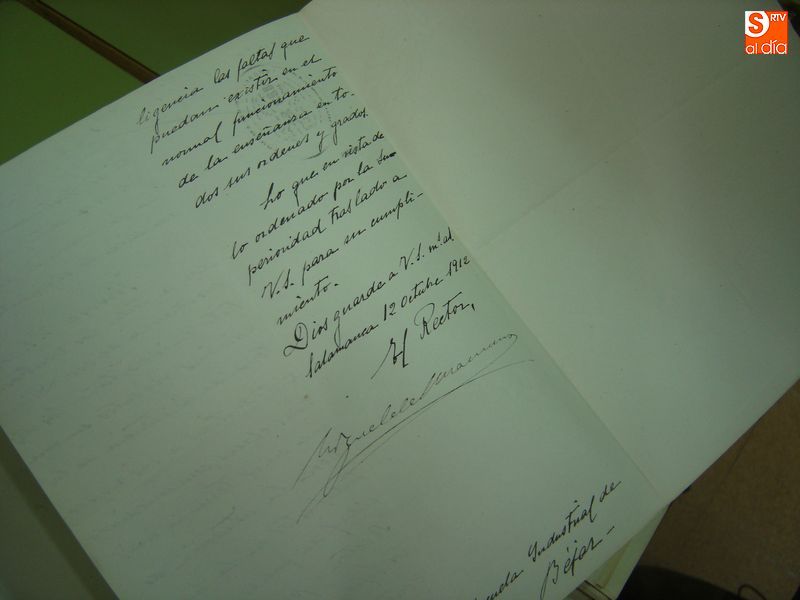 ligencia las faltas que
puedan existir en el
normal funcionamiento
de la enseñanza en to-
dos sus ordenes y grados.
Lo que en vista de
lo ordenado por la Su-
perioridad traslado a
V.S. para su cumpli-
miento.
Dios guarde a V.S. m.s a.s
Salamanca 12 Octubre 1912
El Rector,
Miguel de Unamuno
Escuela Industrial de
Béjar-
S RTV
al día